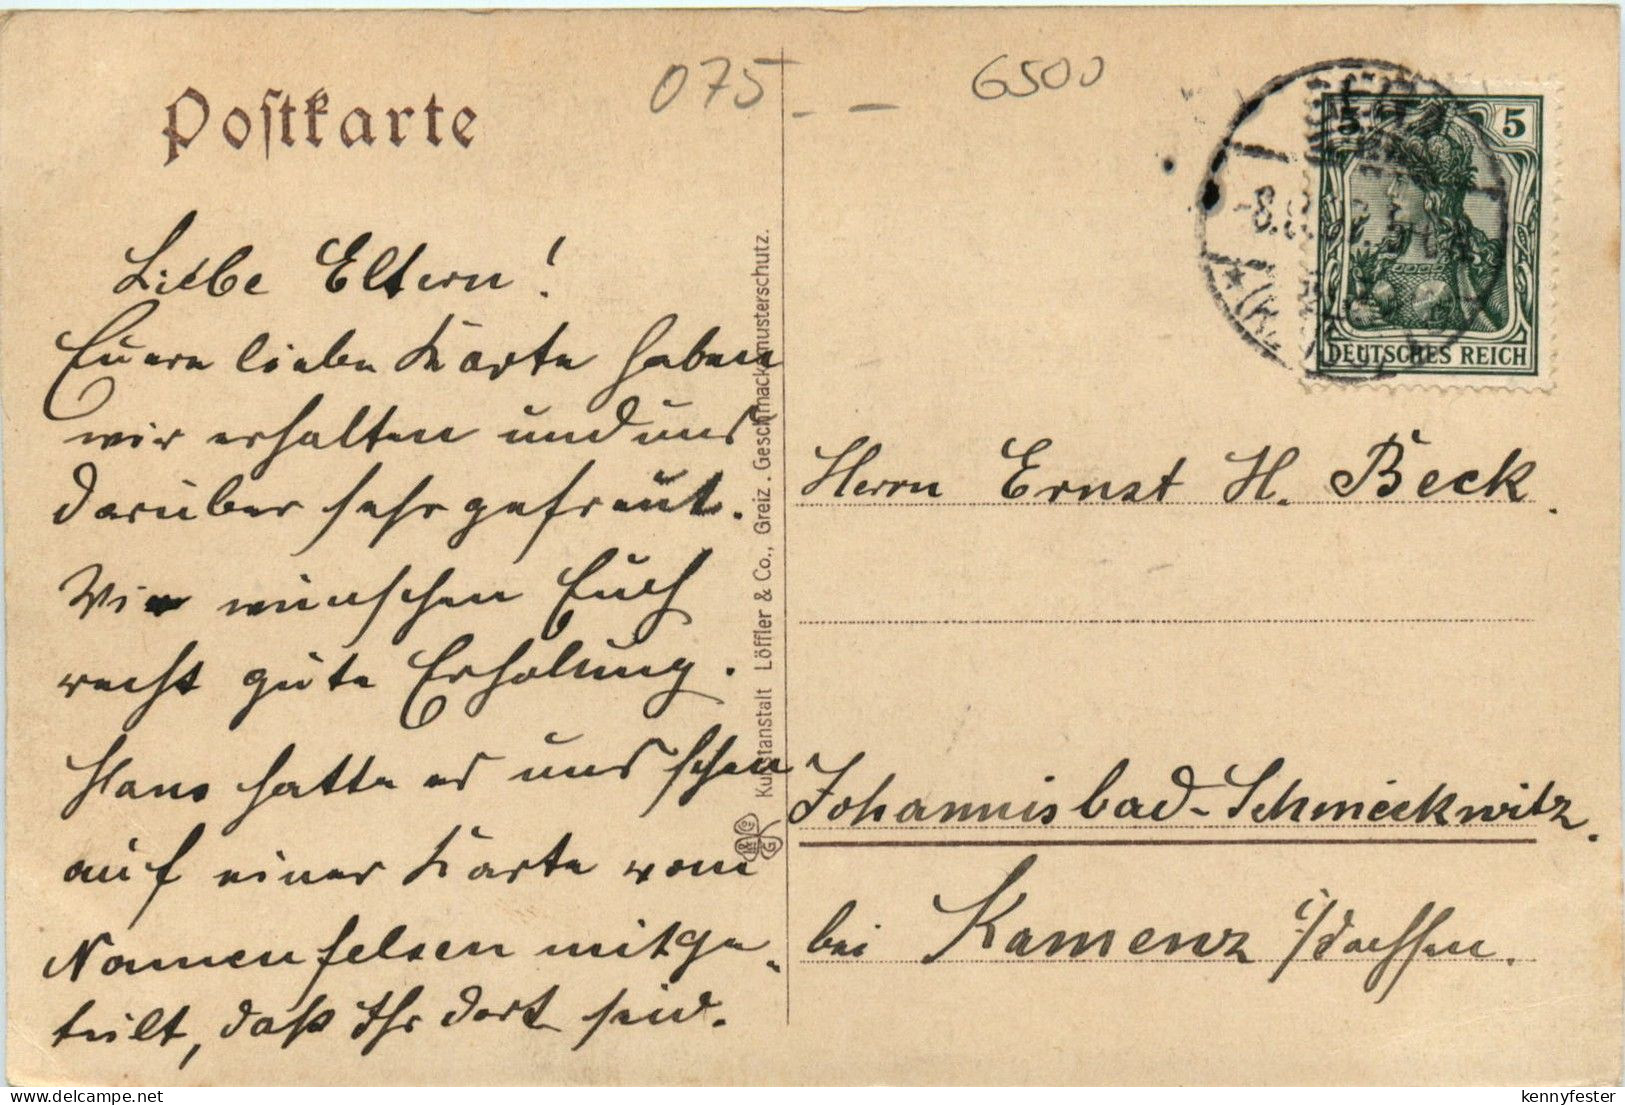 Postkarte
075 - -
6500
Liebe Eltern!
Euere liebe Karte haben
wir erhalten und uns
darüber sehr gefreut.
Wir wünschen Euch
recht gute Erholung.
Hans hatte es uns schon
auf einer Karte vom
Nonnenfelsen mitge-
teilt, daß Ihr dort seid.
Kunstanstalt Löffler & Co., Greiz. Geschmackmusterschutz.
5 5
DEUTSCHES REICH
-8.8.
Herrn Ernst H. Beck.
Johannisbad-Schmeckwitz.
bei Kamenz i/Sachsen.
www.delcampe.net
kennyfester